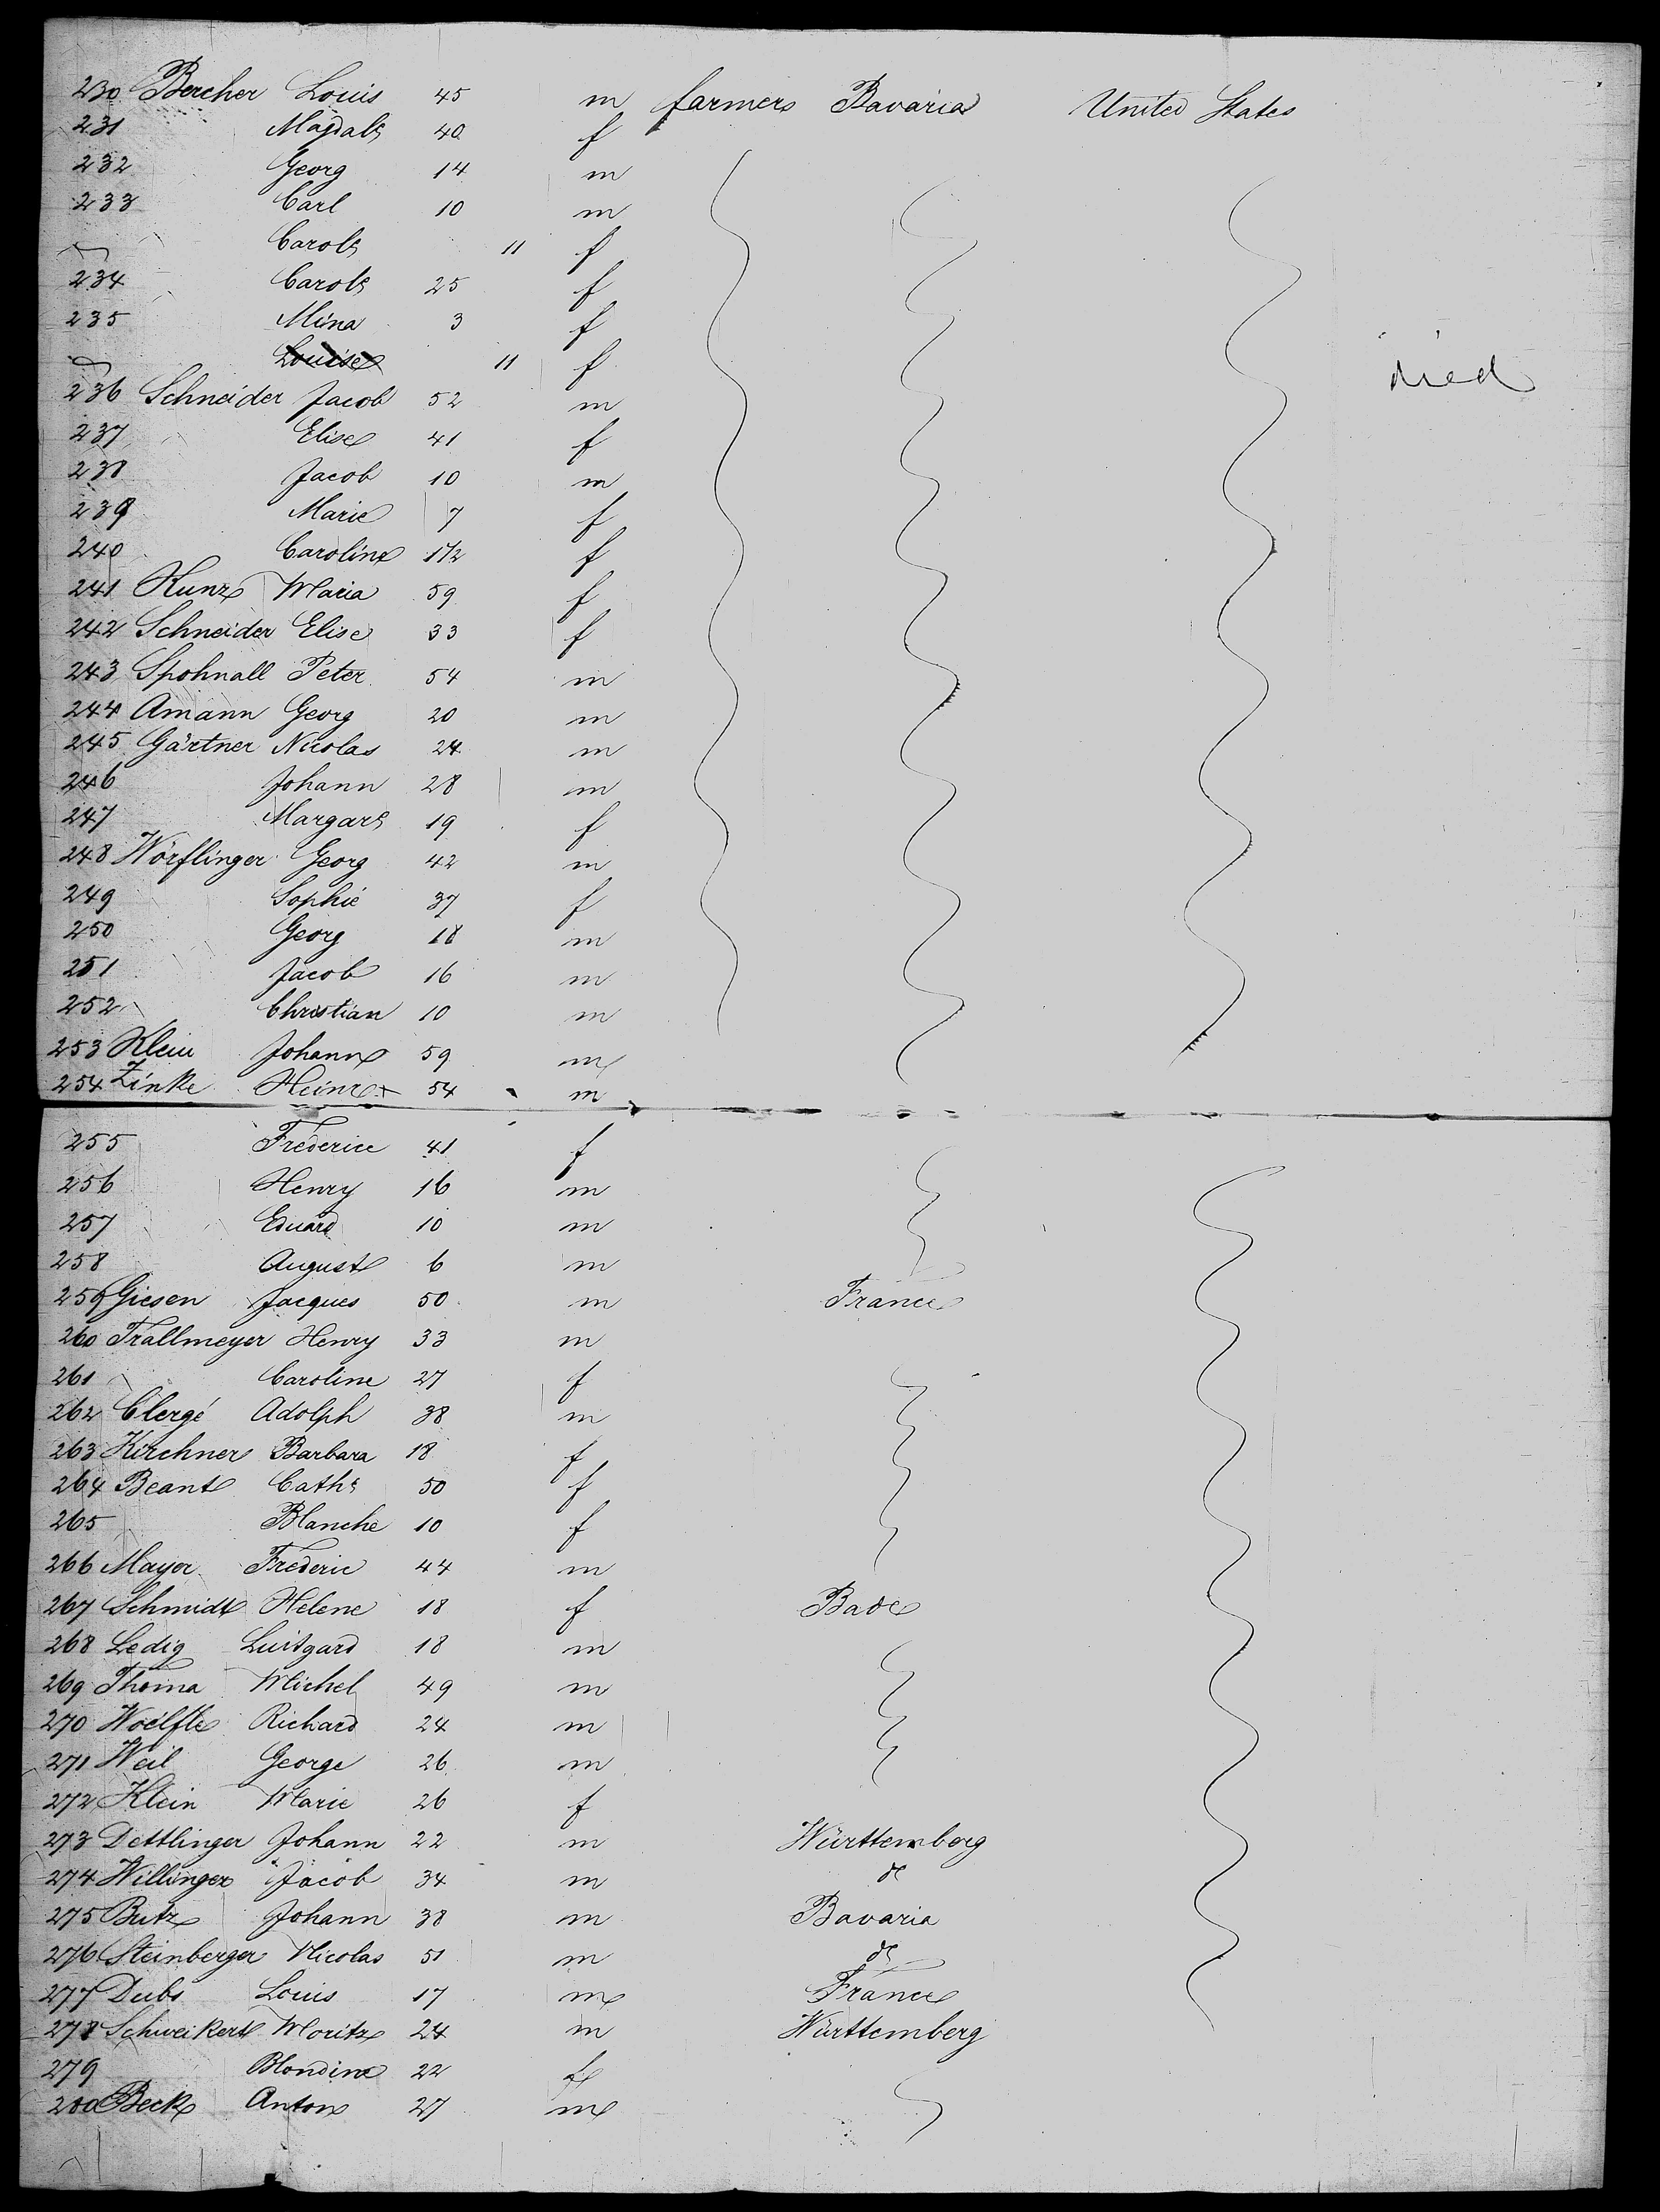 230 Bercher Louis 45 m farmers Bavaria United States
231 Magdal⁵ 40 f
232 Georg 14 m
233 Carl 10 m
Carol⁵ 11 f
234 Carol⁵ 25 f
235 Mina 3 f
Louise 11 f died
236 Schneider Jacob 52 m
237 Elise 41 f
238 Jacob 10 m
239 Marie 7 f
240 Caroline 1 1/2 f
241 Kunz Maria 59 f
242 Schneider Elise 33 f
243 Spohnall Peter 54 m
244 Amann Georg 20 m
245 Gärtner Nicolas 24 m
246 Johann 28 m
247 Margar⁵ 19 f
248 Wörflinger Georg 42 m
249 Sophie 37 f
250 Georg 18 m
251 Jacob 16 m
252 Christian 10 m
253 Klein Johann 59 m
254 Zinke Heinr 54 m
255 Frederice 41 f
256 Henry 16 m
257 Eduard 10 m
258 August 6 m
259 Giesen Jacques 50 m France
260 Trallmeyer Henry 33 m
261 Caroline 27 f
262 Clergé Adolph 38 m
263 Kirchner Barbara 18 f
264 Beant Cath⁵ 50 f
265 Blanche 10 f
266 Mayor Frederic 44 m
267 Schmidt Helene 18 f Bade
268 Ledig Luitgard 18 m
269 Thoma Michel 49 m
270 Woelfle Richard 24 m
271 Weil George 26 m
272 Klein Marie 26 f
273 Dettlinger Johann 22 m Württemberg
274 Willinger Jacob 34 m d⁰
275 Butz Johann 38 m Bavaria
276 Steinberger Nicolas 51 m d⁰
277 Dubs Louis 17 m France
278 Schweikert Moritz 24 m Württemberg
279 Blondine 22 f
280 Beck Anton 27 m